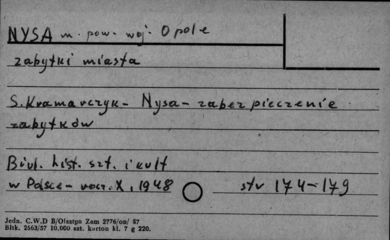 NYSA m. pow. woj. Opole
zabytki miasta
S. Kramarczyk - Nysa - zabezpieczenie
zabytków
Biul. hist. szt. i kult
w Polsce - rocz. X, 1948 str 174-179
Jedn. C.W.D B/Olsztyn Zam 2776/on/ 57
Bltk. 2563/57 10.000 szt. karton kl. 7 g 220.